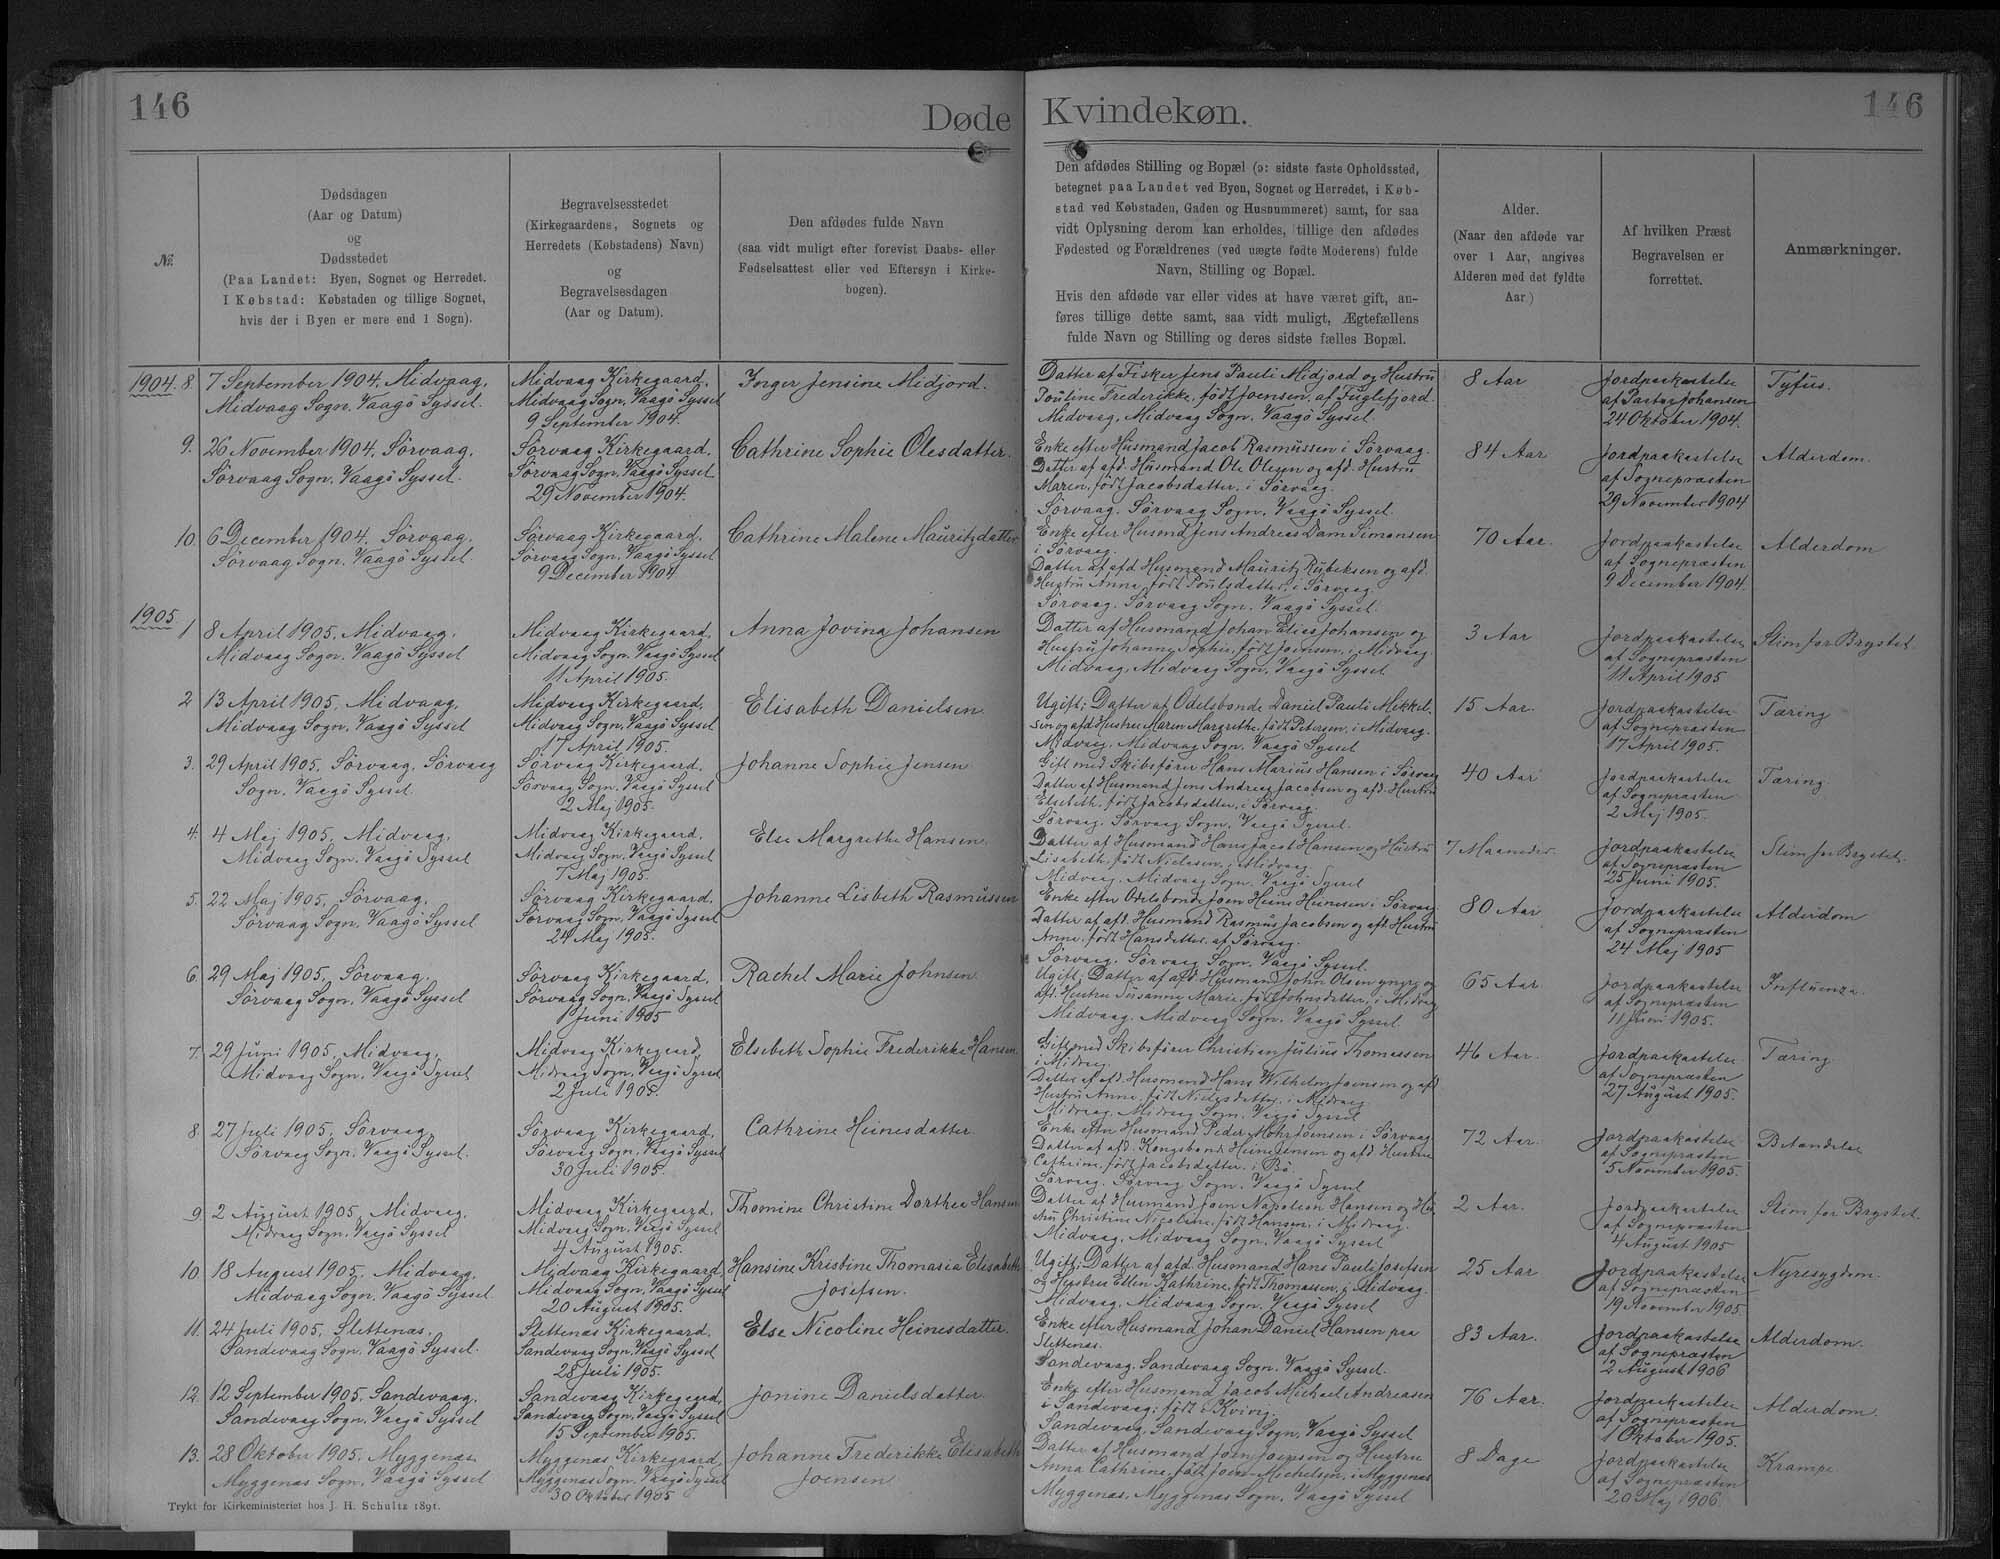 146
Døde
Kvindekøn.
146
Nr.
Dødsdagen
(Aar og Datum)
og
Dødsstedet
(Paa Landet: Byen, Sognet og Herredet.
I Købstad: Købstaden og tillige Sognet,
hvis der i Byen er mere end 1 Sogn).
Begravelsesstedet
(Kirkegaardens, Sognets og
Herredets (Købstadens) Navn)
og
Begravelsesdagen
(Aar og Datum).
Den afdødes fulde Navn
(saa vidt muligt efter forevist Daabs- eller
Fødselsattest eller ved Eftersyn i Kirke-
bogen).
Den afdødes Stilling og Bopæl (ɔ: sidste faste Opholdssted,
betegnet paa Landet ved Byen, Sognet og Herredet, i Køb-
stad ved Købstaden, Gaden og Husnummeret) samt, for saa
vidt Oplysning derom kan erholdes, tillige den afdødes
Fødested og Forældrenes (ved uægte fødte Moderens) fulde
Navn, Stilling og Bopæl.
Hvis den afdøde var eller vides at have været gift, an-
føres tillige dette samt, saa vidt muligt, Ægtefællens
fulde Navn og Stilling og deres sidste fælles Bopæl.
Alder.
(Naar den afdøde var
over 1 Aar, angives
Alderen med det fyldte
Aar.)
Af hvilken Præst
Begravelsen er
forrettet.
Anmærkninger.
1904. 8. 7 September 1904. Midvaag.
Midvaag Sogn. Vaagö Syssel.
Midvaag Kirkegaard.
Midvaag Sogn. Vaagö Syssel
9 September 1904.
Inger Jensine Midjord.
Datter af Fisker Jens Pauli Midjord og Hustru
Pouline Frederikke, född Joensen, af Fuglefjord.
Midvaag, Midvaag Sogn. Vaagö Syssel
8 Aar
Jordpaakastelse
af Pastor Johansen
24 Oktober 1904.
Tyfus.
9. 26 November 1904. Sörvaag.
Sörvaag Sogn. Vaagö Syssel.
Sörvaag Kirkegaard.
Sörvaag Sogn. Vaagö Syssel
29 November 1904.
Cathrine Sophie Olesdatter.
Enke efter Husmand Jacob Rasmussen i Sörvaag.
Datter af afd. Husmand Ole Olesen og afd. Hustru
Maren, född Jacobsdatter, i Sörvaag.
Sörvaag. Sörvaag Sogn. Vaagö Syssel.
84 Aar
Jordpaakastelse
af Sognepræsten
29 November 1904
Alderdom.
10. 6 December 1904. Sörvaag.
Sörvaag Sogn. Vaagö Syssel.
Sörvaag Kirkegaard.
Sörvaag Sogn. Vaagö Syssel
9 December 1904
Cathrine Malene Mauritzdatter
Enke efter Husmand Jens Andreas Dam Simonsen
i Sörvaag.
Datter af afd. Husmand Mauritz Rubeksen og afd.
Hustru Anna, född Poulsdatter, i Sörvaag.
Sörvaag. Sörvaag Sogn. Vaagö Syssel.
70 Aar.
Jordpaakastelse
af Sognepræsten
9 December 1904.
Alderdom
1905
1 8 April 1905. Midvaag.
Midvaag Sogn. Vaagö Syssel
Midvaag Kirkegaard.
Midvaag Sogn. Vaagö Syssel
11 April 1905.
Anna Jovina Johansen
Datter af Husmand Johan Elias Johansen og
Hustru Johanne Sophie, född Joensen, i Midvaag.
Midvaag, Midvaag Sogn. Vaagö Syssel
3 Aar
Jordpaakastelse
af Sognepræsten
11 April 1905
Slim for Brystet.
2 13 April 1905. Midvaag.
Midvaag Sogn. Vaagö Syssel
Midvaag Kirkegaard.
Midvaag Sogn. Vaagö Syssel
17 April 1905.
Elisabeth Danielsen
Ugift; Datter af Odelsbonde Daniel Pauli Mikkel-
sen og afd. Hustru Maren Margrethe, född Petersen, i Midvaag.
Midvaag. Midvaag Sogn. Vaagö Syssel
15 Aar.
Jordpaakastelse
af Sognepræsten
17 April 1905.
Tæring
3. 29 April 1905. Sörvaag. Sörvaag
Sogn. Vaagö Syssel.
Sörvaag Kirkegaard.
Sörvaag Sogn. Vaagö Syssel
2 Maj 1905.
Johanne Sophie Jensen
Gift med Skibsförer Hans Marius Hansen i Sörvaag
Datter af Husmand Jens Andreas Jacobsen og afd. Hustru
Elsebeth, född Jacobsdatter, i Sörvaag.
Sörvaag. Sörvaag Sogn. Vaagö Syssel.
40 Aar
Jordpaakastelse
af Sognepræsten
2 Maj 1905.
Tæring.
4. 4 Maj 1905. Midvaag.
Midvaag Sogn. Vaagö Syssel
Midvaag Kirkegaard.
Midvaag Sogn. Vaagö Syssel
7 Maj 1905.
Else Margrethe Hansen.
Datter af Husmand Hans Jacob Hansen og Hustru
Lisabeth, född Nielasen, i Midvaag
Midvaag. Midvaag Sogn. Vaagö Syssel
7 Maaneder.
Jordpaakastelse
af Sognepræsten
25 Juni 1905.
Slim for Brystet.
5. 22 Maj 1905. Sörvaag.
Sörvaag Sogn. Vaagö Syssel
Sörvaag Kirkegaard.
Sörvaag Sogn. Vaagö Syssel
24 Maj 1905.
Johanne Lisbeth Rasmussen
Enke efter Odelsbonde Joen Heine Heinesen i Sörvaag.
Datter af afd. Husmand Rasmus Jacobsen og afd. Hustru
Anne, född Hansdatter, af Sörvaag.
Sörvaag. Sörvaag Sogn. Vaagö Syssel.
80 Aar
Jordpaakastelse
af Sognepræsten
24 Maj 1905
Alderdom
6. 29 Maj 1905. Sörvaag.
Sörvaag Sogn. Vaagö Syssel
Sörvaag Kirkegaard.
Sörvaag Sogn. Vaagö Syssel
1 Juni 1905
Rachel Marie Johnsen
Ugift; Datter af afd. Husmand John Olsen yngr. og
afd. Hustru Susanne Marie, född Johnsdatter, i Midvaag
Midvaag. Midvaag Sogn. Vaagö Syssel.
65 Aar
Jordpaakastelse
af Sognepræsten
11 Juni 1905.
Influenza.
7. 29 Juni 1905. Midvaag.
Midvaag Sogn. Vaagö Syssel
Midvaag Kirkegaard
Midvaag Sogn. Vaagö Syssel
2 Juli 1905.
Elsebeth Sophie Frederikke Hansen.
Gift med Skibsförer Christian Julius Thomassen
i Midvaag.
Datter af afd. Husmand Hans Wilhelm Joensen og afd.
Hustru Anne, född Nielsdatter, i Midvaag
Midvaag. Midvaag Sogn. Vaagö Syssel
46 Aar.
Jordpaakastelse
af Sognepræsten
27 August 1905.
Tæring
8. 27 Juli 1905. Sörvaag
Sörvaag Sogn. Vaagö Syssel.
Sörvaag Kirkegaard.
Sörvaag Sogn. Vaagö Syssel
30 Juli 1905.
Cathrine Heinesdatter
Enke efter Husmand Peder Mohr Joensen i Sörvaag
Datter af afd. Kongsbonde Heine Jensen og afd. Hustru
Cathrine, född Jacobsdatter, i Bö.
Sörvaag. Sörvaag Sogn. Vaagö Syssel
72 Aar.
Jordpaakastelse
af Sognepræsten
5 November 1905.
9. 2 August 1905. Midvaag.
Midvaag Sogn. Vaagö Syssel
Midvaag Kirkegaard.
Midvaag Sogn. Vaagö Syssel
4 August 1905.
Thomine Christine Dorthea Hansen
Datter af Husmand Joen Napoleon Hansen og Hu-
stru Christine Nicoline, född Hansen, i Midvaag.
Midvaag, Midvaag Sogn. Vaagö Syssel
2 Aar.
Jordpaakastelse
af Sognepræsten
4 August 1905
Slim for Brystet.
10. 18 August 1905. Midvaag.
Midvaag Sogn. Vaagö Syssel
Midvaag Kirkegaard.
Midvaag Sogn. Vaagö Syssel
20 August 1905.
Hansine Kristine Thomasia Elisabeth
Josefsen.
Ugift; Datter af afd. Husmand Hans Pauli Josefsen
og Hustru Ellen Kathrine, född Thomassen, i Midvaag.
Midvaag, Midvaag Sogn. Vaagö Syssel
25 Aar
Jordpaakastelse
af Sognepræsten
19 November 1905
Nyresygdom.
11. 24 Juli 1905. Slettenæs.
Sandevaag Sogn. Vaagö Syssel.
Slettenæs Kirkegaard.
Sandevaag Sogn. Vaagö Syssel
28 Juli 1905.
Else Nicoline Heinesdatter.
Enke efter Husmand Johan Daniel Hansen paa
Slettenæs.
Sandevaag. Sandevaag Sogn. Vaagö Syssel.
83 Aar.
Jordpaakastelse
af Sognepræsten
2 August 1906
Alderdom.
12. 12 September 1905. Sandevaag.
Sandevaag Sogn. Vaagö Syssel
Sandevaag Kirkegaard,
Sandevaag Sogn. Vaagö Syssel
15 September 1905.
Janine Danielsdatter
Enke efter Husmand Jacob Michael Andreasen
i Sandevaag; född i Kvivig.
Sandevaag, Sandevaag Sogn, Vaagö Syssel
76 Aar.
Jordpaakastelse
af Sognepræsten
1 Oktober 1905.
Alderdom.
13. 28 Oktober 1905. Myggenæs
Myggenæs Sogn. Vaagö Syssel
Myggenæs Kirkegaard,
Myggenæs Sogn. Vaagö Syssel
30 Oktober 1905
Johanne Frederikke Elisabeth
Joensen
Datter af Husmand Joen Joensen og Hustru
Anna Cathrine, född Joen-Michelsen, i Myggenæs
Myggenæs, Myggenæs Sogn. Vaagö Syssel
8 Dage
Jordpaakastelse
af Sognepræsten
20 Maj 1906
Krampe
Trykt for Kirkeministeriet hos J. H. Schultz 1891.